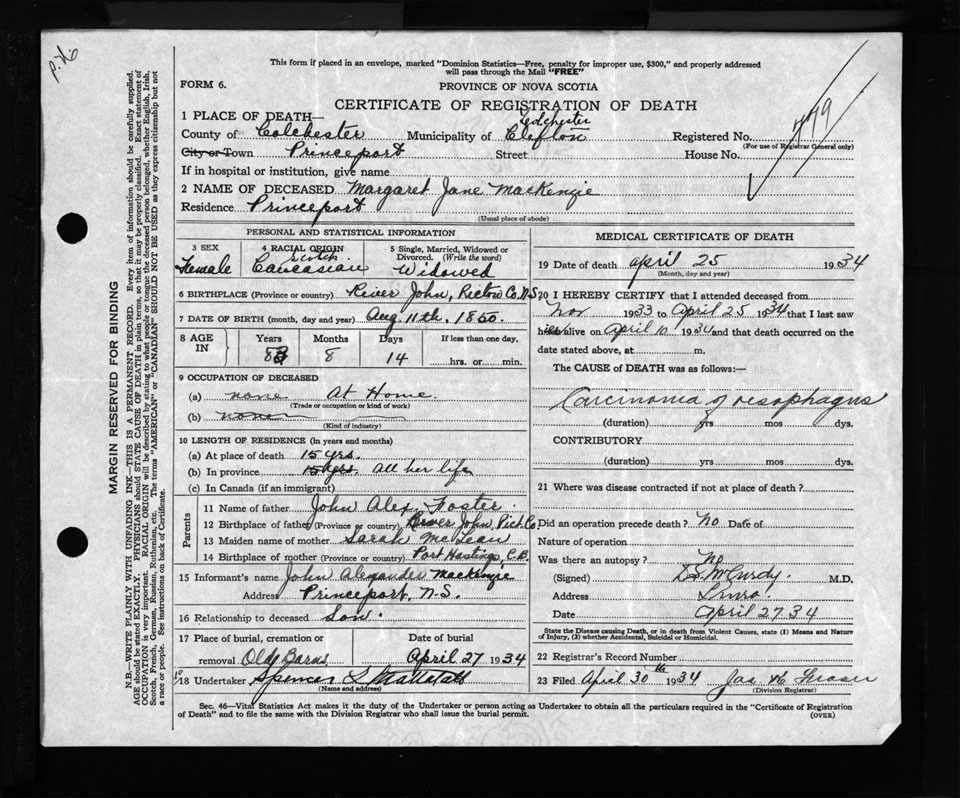 P.26
This form if placed in an envelope, marked "Dominion Statistics—Free, penalty for improper use, $300," and properly addressed
will pass through the Mail "FREE"
FORM 6. PROVINCE OF NOVA SCOTIA
CERTIFICATE OF REGISTRATION OF DEATH
1 PLACE OF DEATH— Colchester
County of Colchester Municipality of Clefton Registered No. 479
(For use of Registrar General only)
City or Town Princeport Street House No.
If in hospital or institution, give name
2 NAME OF DECEASED Margaret Jane MacKenzie
Residence Princeport
(Usual place of abode)
PERSONAL AND STATISTICAL INFORMATION
3 SEX 4 RACIAL ORIGIN 5 Single, Married, Widowed or
Divorced. (Write the word)
Scotch
Female Caucasian Widowed
6 BIRTHPLACE (Province or country) River John, Pictou Co. N.S.
7 DATE OF BIRTH (month, day and year) Aug 11th, 1850.
8 AGE IN Years Months Days If less than one day,
83 8 14 hrs. or min.
9 OCCUPATION OF DECEASED
(a) none At Home.
(Trade or occupation or kind of work)
(b) none
(Kind of industry)
10 LENGTH OF RESIDENCE (in years and months)
(a) At place of death 15 yrs.
(b) In province 15 yrs. all her life
(c) In Canada (if an immigrant)
Parents
11 Name of father John Alex. Foster
12 Birthplace of father (Province or country) River John, Pict. Co.
13 Maiden name of mother Sarah McLean
14 Birthplace of mother (Province or country) Port Hastings, C.B.
15 Informant's name John Alexander MacKenzie
Address Princeport, N.S.
16 Relationship to deceased Son.
17 Place of burial, cremation or Date of burial
removal Old Barns April 27 1934
18 Undertaker Spencer L Mattatall
(Name and address)
MEDICAL CERTIFICATE OF DEATH
19 Date of death april 25 1934
(Month, day and year)
20 I HEREBY CERTIFY that I attended deceased from
Nov 1933 to April 25 1934 that I last saw
her alive on April 10 1934 and that death occurred on the
date stated above, at m.
The CAUSE of DEATH was as follows:—
Carcinoma of oesophagus
(duration) yrs mos dys.
CONTRIBUTORY
(duration) yrs mos dys.
21 Where was disease contracted if not at place of death?
Did an operation precede death? no Date of
Nature of operation
Was there an autopsy? No
(Signed) D.S. McCurdy. M.D.
Address Truro.
Date April 27.34
State the Disease causing Death, or in death from Violent Causes, state (1) Means and Nature
of Injury, (2) whether Accidental, Suicidal or Homicidal.
22 Registrar's Record Number
23 Filed April 30th 1934 Jas N Fraser
(Division Registrar)
Sec. 46—Vital Statistics Act makes it the duty of the Undertaker or person acting as Undertaker to obtain all the particulars required in the "Certificate of Registration
of Death" and to file the same with the Division Registrar who shall issue the burial permit. (OVER)
MARGIN RESERVED FOR BINDING
N.B.—WRITE PLAINLY WITH UNFADING INK—THIS IS A PERMANENT RECORD. Every item of information should be carefully supplied.
AGE should be stated EXACTLY. PHYSICIANS should state CAUSE OF DEATH in plain terms, so that it may be properly classified. Exact statement of
OCCUPATION is very important. RACIAL ORIGIN will be described by stating to what people or tongue the deceased person belonged, whether English, Irish,
Scotch, French, German, Russian, Ruthenian, etc. The terms "AMERICAN" or "CANADIAN" SHOULD NOT BE USED as they express citizenship but not
a race or people. See instructions on back of Certificate.